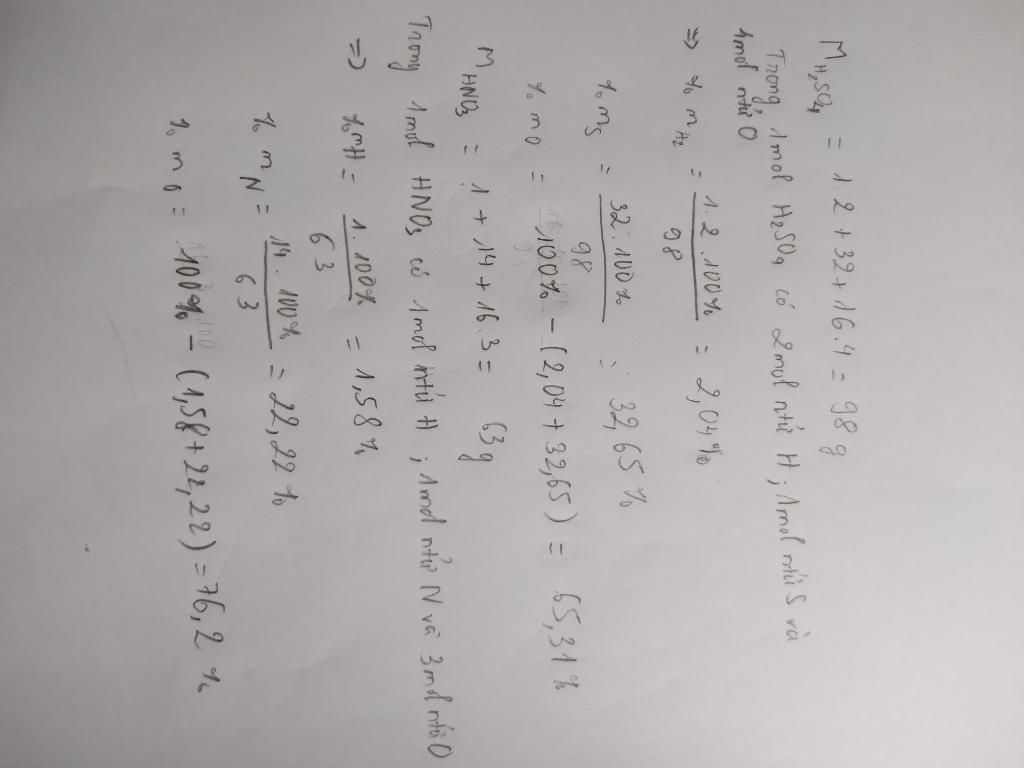 M H₂SO₄ = 1.2 + 32 + 16.4 = 98 g
Trong 1mol H₂SO₄ có 2mol ntử H ; 1mol ntử S và
4mol ntử O
=> % m H₂ = 1.2.100% / 98 = 2,04%
% m S = 32.100% / 98 : 32,65 %
% m O = 100% - (2,04 + 32,65) = 65,31 %
M HNO₃ = 1 + 14 + 16.3 = 63 g
Trong 1mol HNO₃ có 1mol ntử H ; 1mol ntử N và 3mol ntử O
=> % mH = 1.100% / 63 = 1,58 %
% m N = 14.100% / 63 = 22,22 %
% m O = 100% - (1,58 + 22,22) = 76,2 %